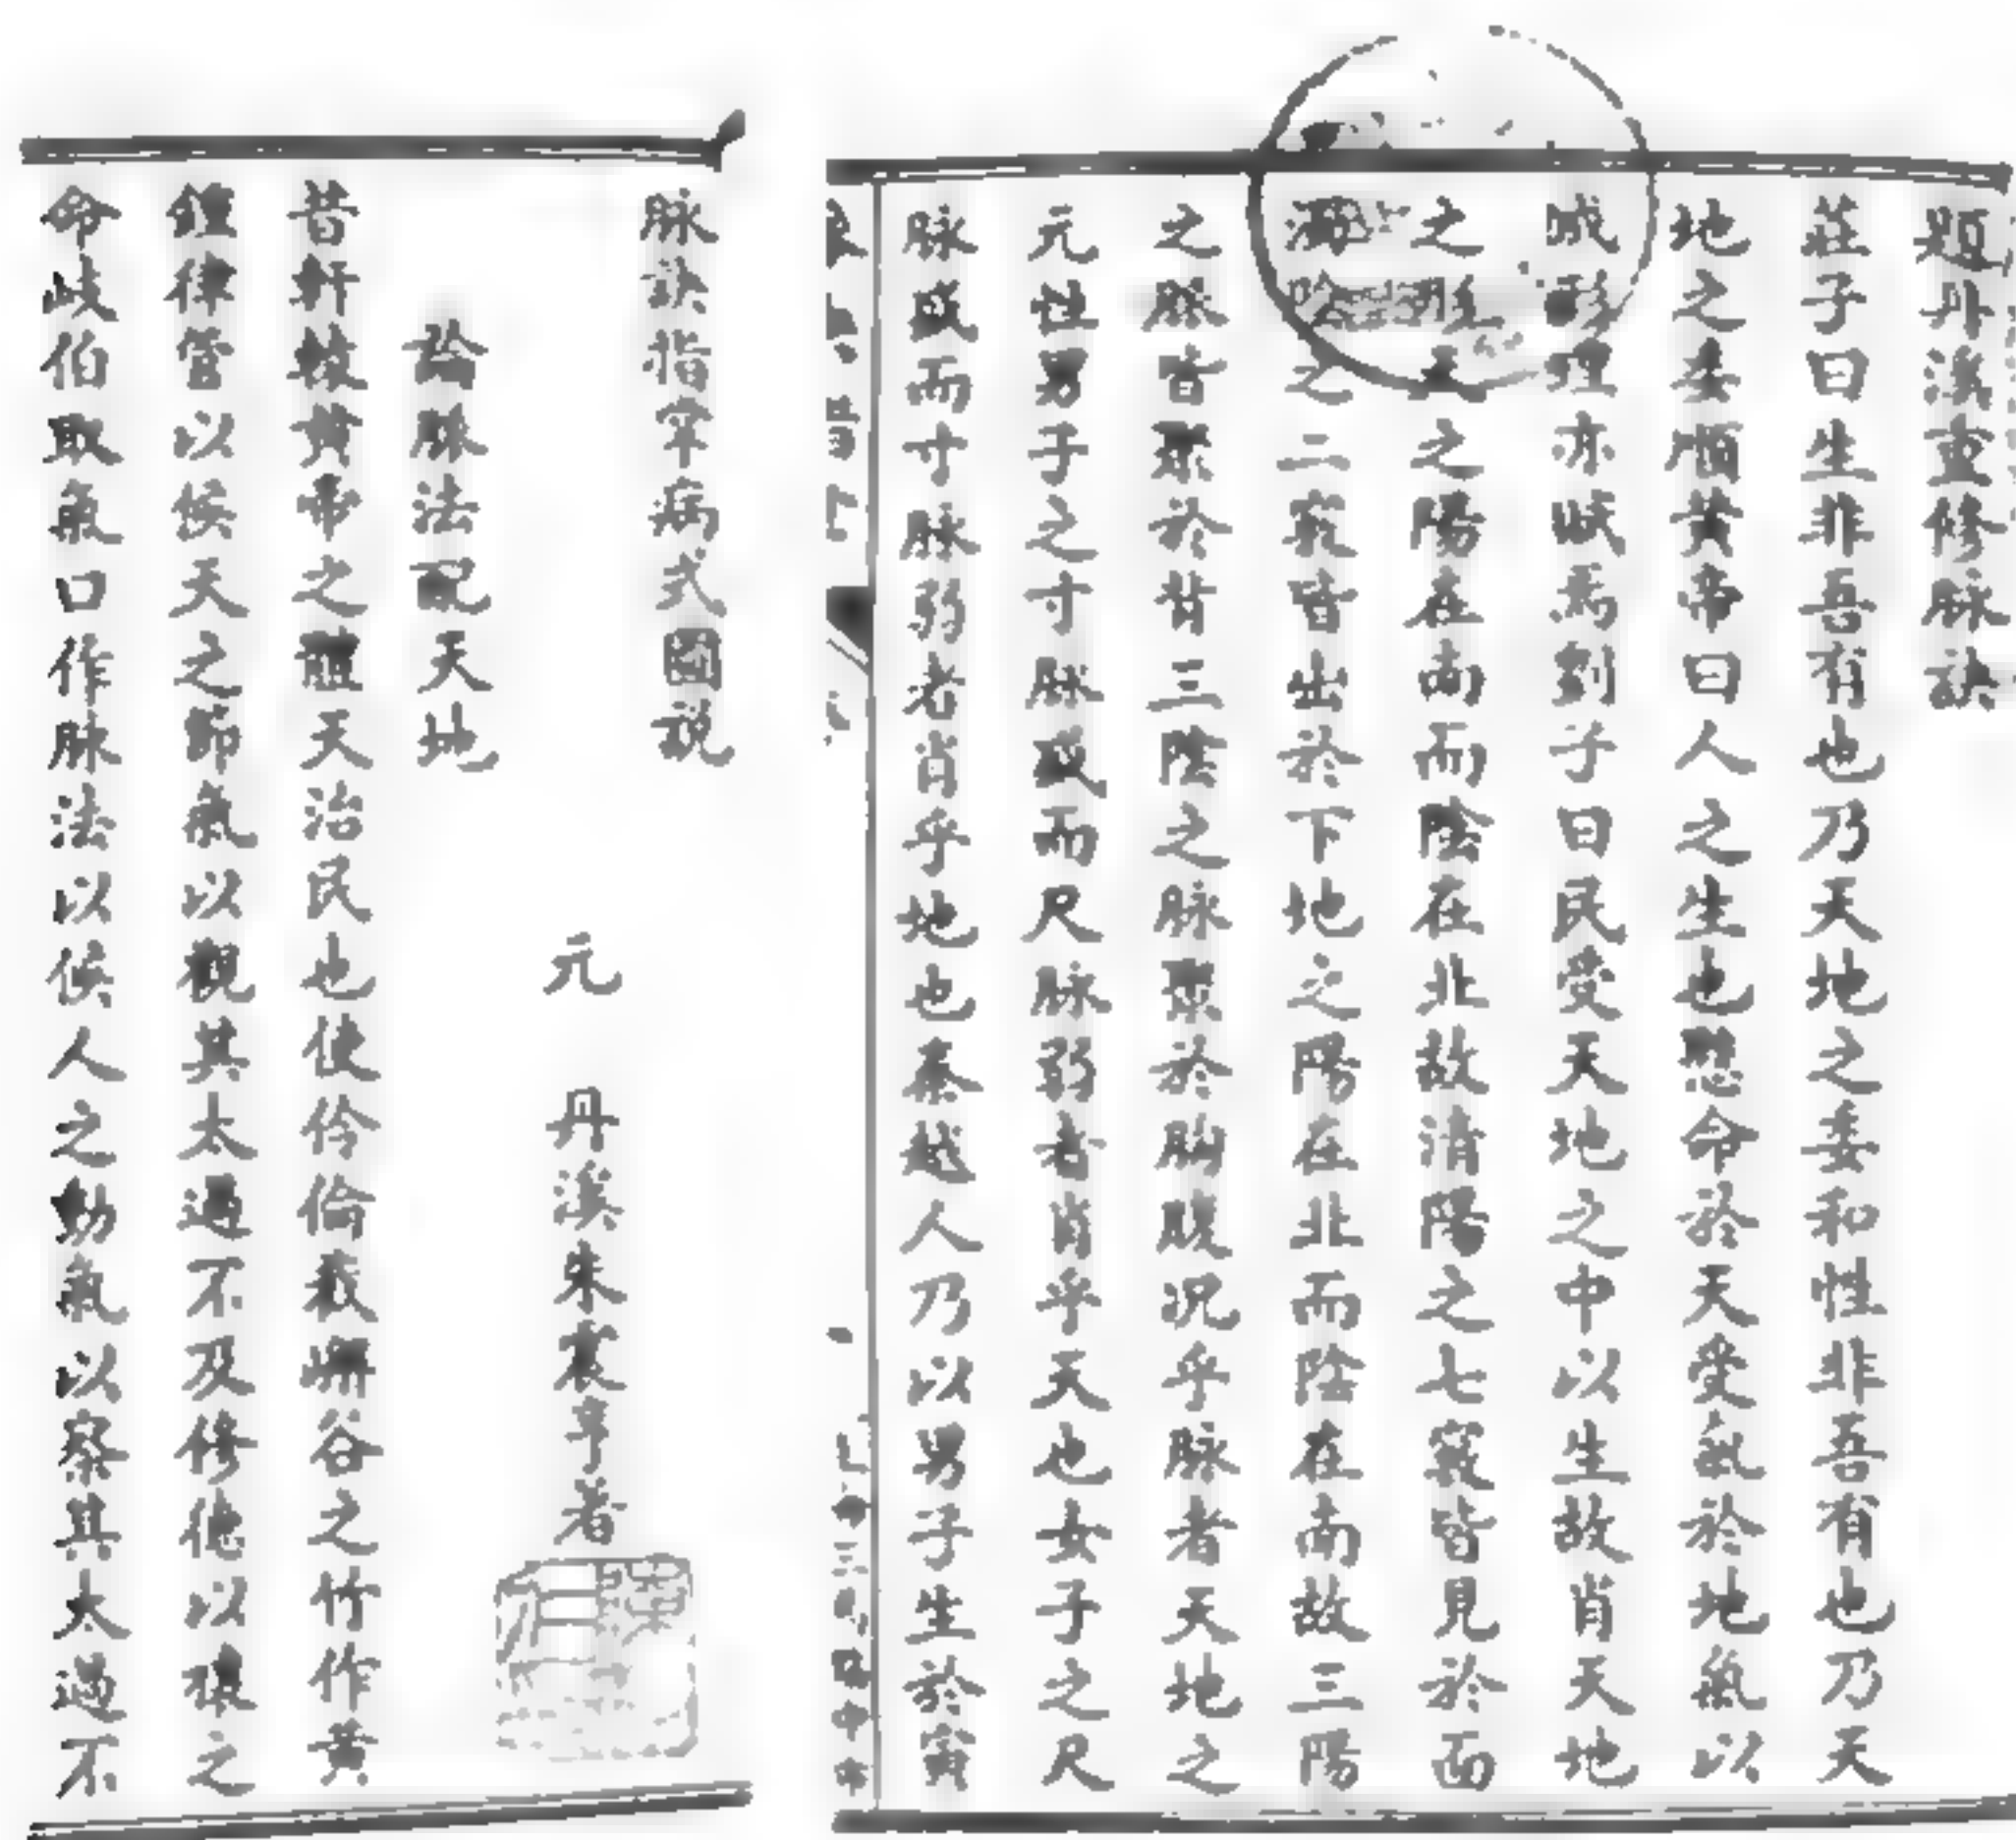 題丹溪重修脉訣
莊子曰生非吾有也乃天地之委和性非吾有也乃天
地之委順黃帝曰人之生也懸命於天受氣於地氣以
成形理亦賦焉劉子曰民受天地之中以生故肖天地
之形天之陽在南而陰在北故清陽之七竅皆見於面
濁陰之二竅皆出於下地之陽在北而陰在南故三陽
之脉皆聚於背三陰之脉聚於胸腹况乎脉者天地之
元性男子之寸脉盛而尺脉弱者肖乎天也女子之尺
脉盛而寸脉弱者肖乎地也秦越人乃以男子生於寅
脉訣指掌病式圖說
元 丹溪朱震亨著
論脉法配天地
昔軒轅黃帝之體天治民也使伶倫截嶰谷之竹作黃
鍾律管以候天之節氣以觀其太過不及修德以禳之
命岐伯取氣口作脉法以候人之動氣以察其太過不